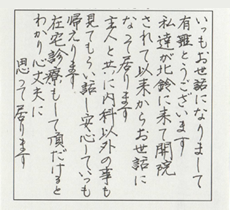 いつもお世話になりまして
有難とうございます
私達が北鈴に来て開院
されて以来からお世話に
なって居ります
主人と共に内科以外の事も
見てもらい話し安心していつも
帰えります
在宅診療もして頂だけると
わかり心丈夫に
思って居ります